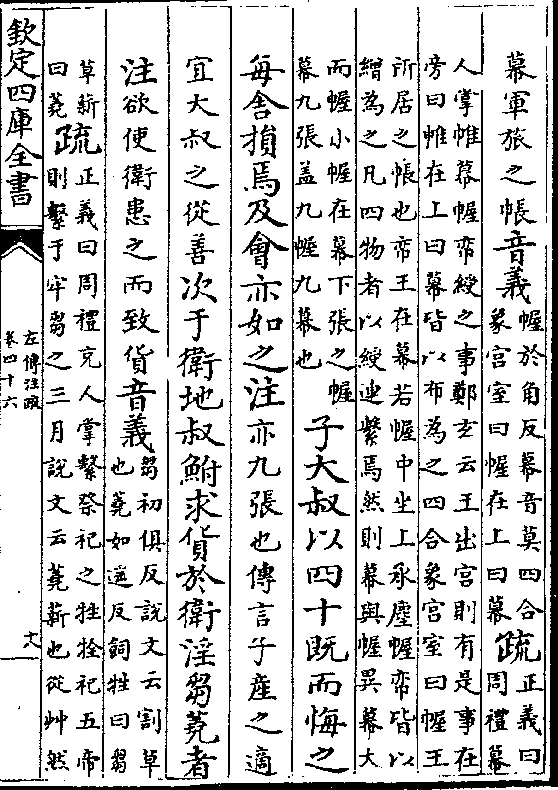 幕軍旅之帳音義幄於角反幕音莫四合象宫室曰幄在上曰幕疏正義曰周禮幕
人掌帷幕幄帟綬之事鄭玄云王出宫則有是事在
旁曰帷在上曰幕皆以布為之四合象宫室曰幄王
所居之帳也帟王在幕若幄中坐上承塵幄帟皆以
繒為之凡四物者以綬連繫焉然則幕與幄異幕大
而幄小幄在幕下張之幄
幕九張盖九幄九幕也子大叔以四十既而悔之
每舍損焉及會亦如之注亦九張也傳言子産之適
宜大叔之從善次于衛地叔鮒求貨於衛淫芻蕘者
注欲使衛患之而致貨音義芻初俱反説文云割草也蕘如遥反飼牲曰芻
草薪曰蕘疏正義曰周禮充人掌繫祭祀之牲牷祀五帝
則繫于牢芻之三月説文云蕘薪也從艸然
欽定四庫全書
左傳注疏
卷四十六
十六